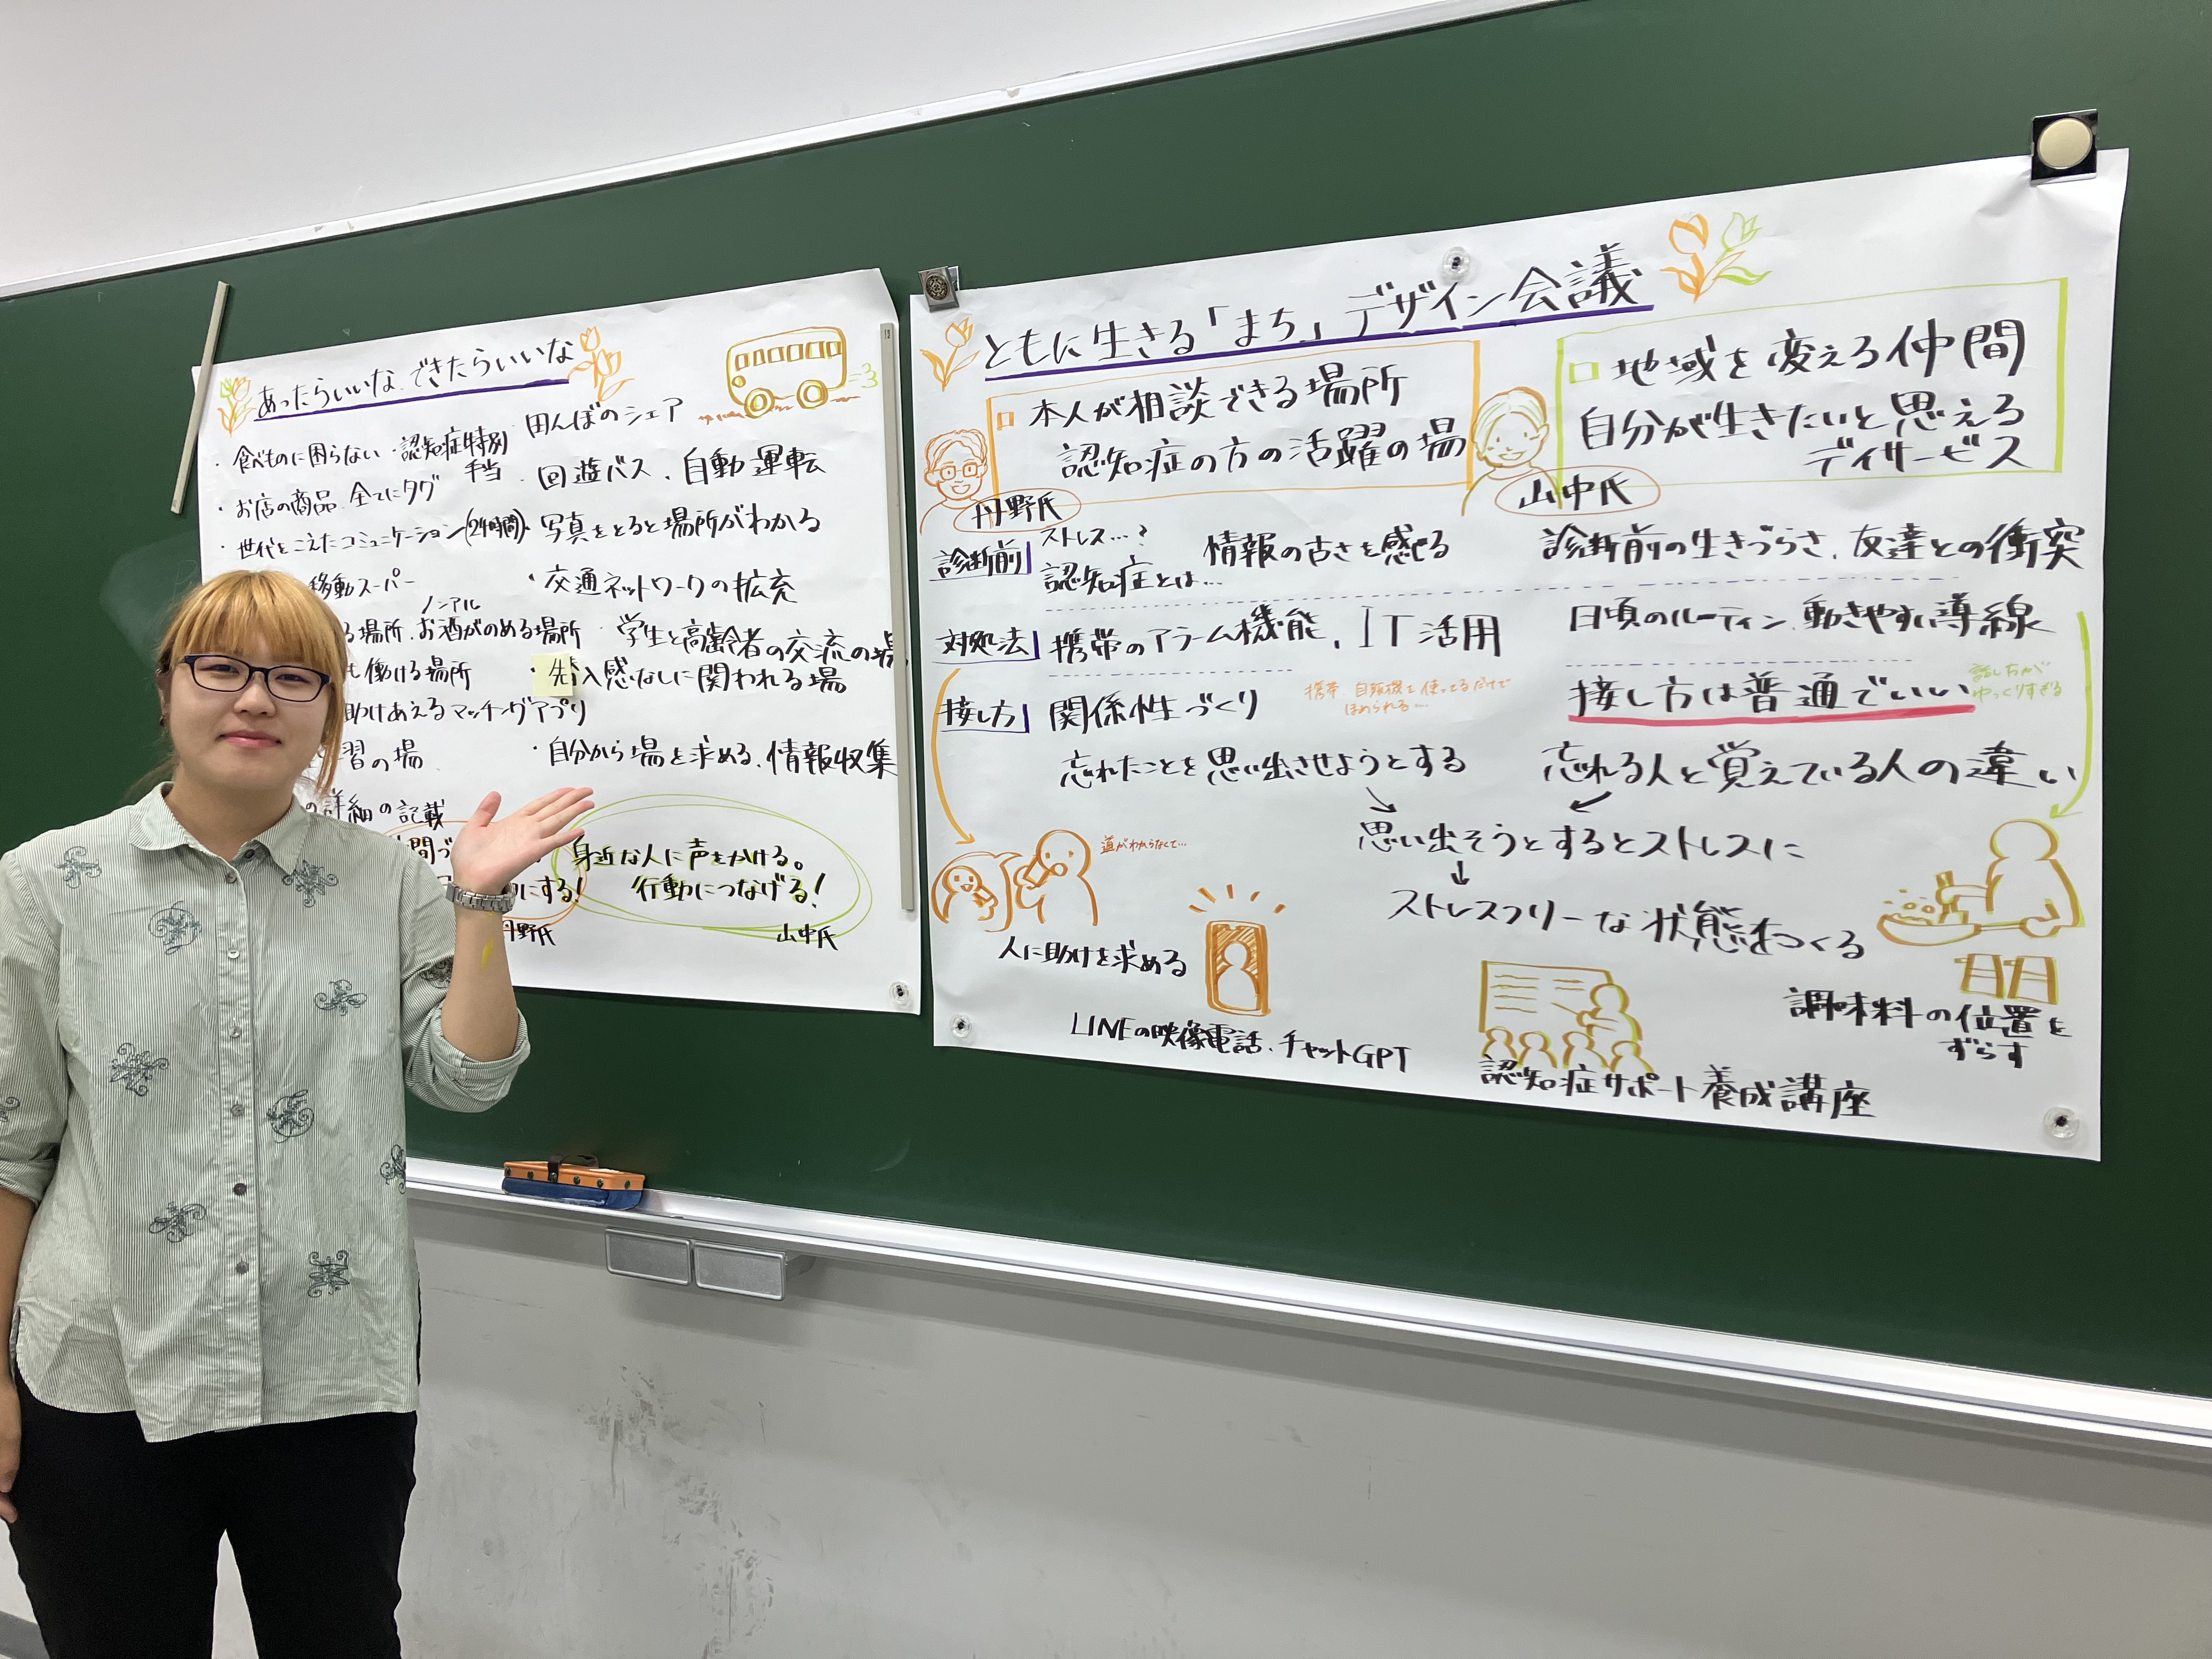 あったらいいな できたらいいな
・食べものに困らない
・認知症特別手当
・お店の商品 全てにタグ
・世代をこえたコミュニケーション(24時間)
移動スーパー
る場所.
ノンアル
お酒がのめる場所
働ける場所
助けあえるマッチングアプリ
習の場
の詳細の記載
田んぼのシェア
・回遊バス、自動運転
・写真をとると場所がわかる
・交通ネットワークの拡充
・学生と高齢者の交流の場
・先入感なしに関われる場
・自分から場を求める、情報収集
にする!
丹野氏
身近な人に声をかける。
行動につなげる!
山中氏
ともに生きる「まち」デザイン会議
本人が相談できる場所
認知症の方の活躍の場
丹野氏
地域を変える仲間
自分が生きたいと思える
デイサービス
山中氏
診断前
ストレス…?
認知症とは…
情報の古さを感じる
診断前の生きづらさ、友達との衝突
対処法
携帯のアラーム機能、IT活用
日頃のルーティン、動きやすい導線
接し方
関係性づくり
携帯 自販機を使ってるだけで
ほめられる…
接し方は普通でいい
話し方が
ゆっくりすぎる
忘れたことを思い出させようとする
忘れる人と覚えている人の違い
思い出そうとするとストレスに
ストレスフリーな状態をつくる
道がわからなくて…
人に助けを求める
LINEの映像電話、チャットGPT
認知症サポート養成講座
調味料の位置を
ずらす